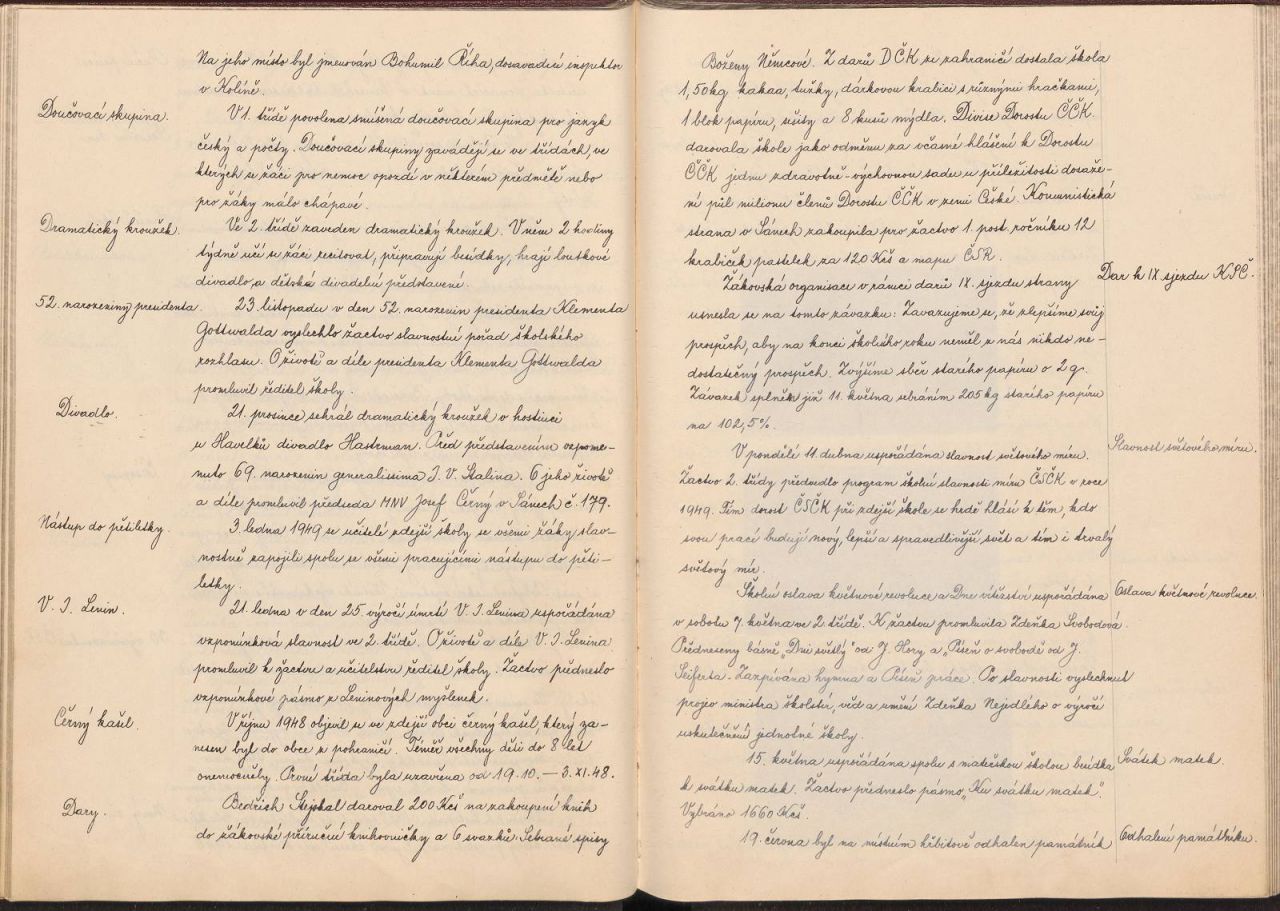 Na jeho místo byl jmenován Bohumil Říha, dosavadní inspektor
v Kolíně.
Doučovací skupina.
V 1. třídě povolena smíšená doučovací skupina pro jazyk
český a počty. Doučovací skupiny zavádějí se ve třídách, ve
kterých se žáci pro nemoc opozdí v některém předmětě nebo
pro žáky málo chápavé.
Dramatický kroužek.
Ve 2. třídě zaveden dramatický kroužek. V něm 2 hodiny
týdně učí se žáci recitovat, připravují besídky, hrají loutkové
divadlo a dětská divadelní představení.
52. narozeniny presidenta.
23. listopadu v den 52. narozenin presidenta Klementa
Gottwalda vyslechlo žactvo slavnostní pořad školského
rozhlasu. O životě a díle presidenta Klementa Gottwalda
promluvil ředitel školy.
Divadlo.
21. prosince sehrál dramatický kroužek v hostinci
u Havelků divadlo Hastrman. Před představením vzpome-
nuto 69. narozenin generalissima J. V. Stalina. O jeho životě
a díle promluvil předseda MNV Josef Černý v Sánech č. 179.
Nástup do pětiletky.
3. ledna 1949 se učitelé zdejší školy se všemi žáky slav-
nostně zapojili spolu se všemi pracujícími nástupu do pěti-
letky.
V. I. Lenin.
21. ledna v den 25 výročí úmrtí V. I. Lenina uspořádána
vzpomínková slavnost ve 2. třídě. O životě a díle V. I. Lenina
promluvil k žactvu a učitelstvu ředitel školy. Žactvo předneslo
vzpomínkové pásmo z Leninových myšlenek.
Černý kašel.
V říjnu 1948 objevil se ve zdejší obci černý kašel, který za-
nesen byl do obce z pohraničí. Téměř všechny děti do 8 let
onemocněly. První třída byla uzavřena od 19.10. – 3. XI. 48.
Dary.
Bedřich Stejskal daroval 200 Kčs na zakoupení knih
do žákovské příruční knihovničky a 6 svazků Sebrané spisy
Boženy Němcové. Z darů DČK ze zahraničí dostala škola
1,50 kg kakaa, tužky, dárkovou krabici s různými hračkami,
1 blok papíru, sešity a 8 kusů mýdla. Divise Dorostu ČČK.
darovala škole jako odměnu za včasné hlášení k Dorostu
ČČK jednu zdravotně-výchovnou sadu u příležitosti dosaže-
ní půl milionu členů Dorostu ČČK v zemi České. Komunistická
strana v Sánech zakoupila pro žactvo 1. post. ročníku 12
krabiček pastelek za 120 Kčs a mapu ČSR.
Dar k IX. sjezdu KSČ.
Žákovská organisace v rámci darů IX. sjezdu strany
usnesla se na tomto závazku: Zavazujeme se, že zlepšíme svůj
prospěch, aby na konci školního roku neměl z nás nikdo ne-
dostatečný prospěch. Zvýšíme sběr starého papíru o 2 q.
Závazek splněn již 11. května sebráním 205 kg starého papíru
na 102,5%.
Slavnost světového míru.
V pondělí 11. dubna uspořádána slavnost světového míru.
Žactvo 2. třídy předvedlo program školní slavnosti míru ČSČK v roce
1949. Tím dorost ČSČK při zdejší škole se hrdě hlásí k těm, kdo
svou prací budují nový, lepší a spravedlivější svět a tím i trvalý
světový mír.
Oslava květnové revoluce.
Školní oslava květnové revoluce a Dne vítězství uspořádána
v sobotu 7. května ve 2. třídě. K žactvu promluvila Zdeňka Svobodová.
Předneseny básně „Dni světlý" od J. Hory a „Píseň o svobodě od J.
Seiferta. Zazpívána hymna a Píseň práce. Po slavnosti vyslechnut
projev ministra školství, věd a umění Zdeňka Nejedlého o výročí
uskutečnění jednotné školy.
Svátek matek.
15. května uspořádána spolu s mateřskou školou besídka
k svátku matek. Žactvo předneslo pásmo „Ku svátku matek".
Vybráno 1660 Kčs.
Odhalení památníku.
19. června byl na místním hřbitově odhalen památník